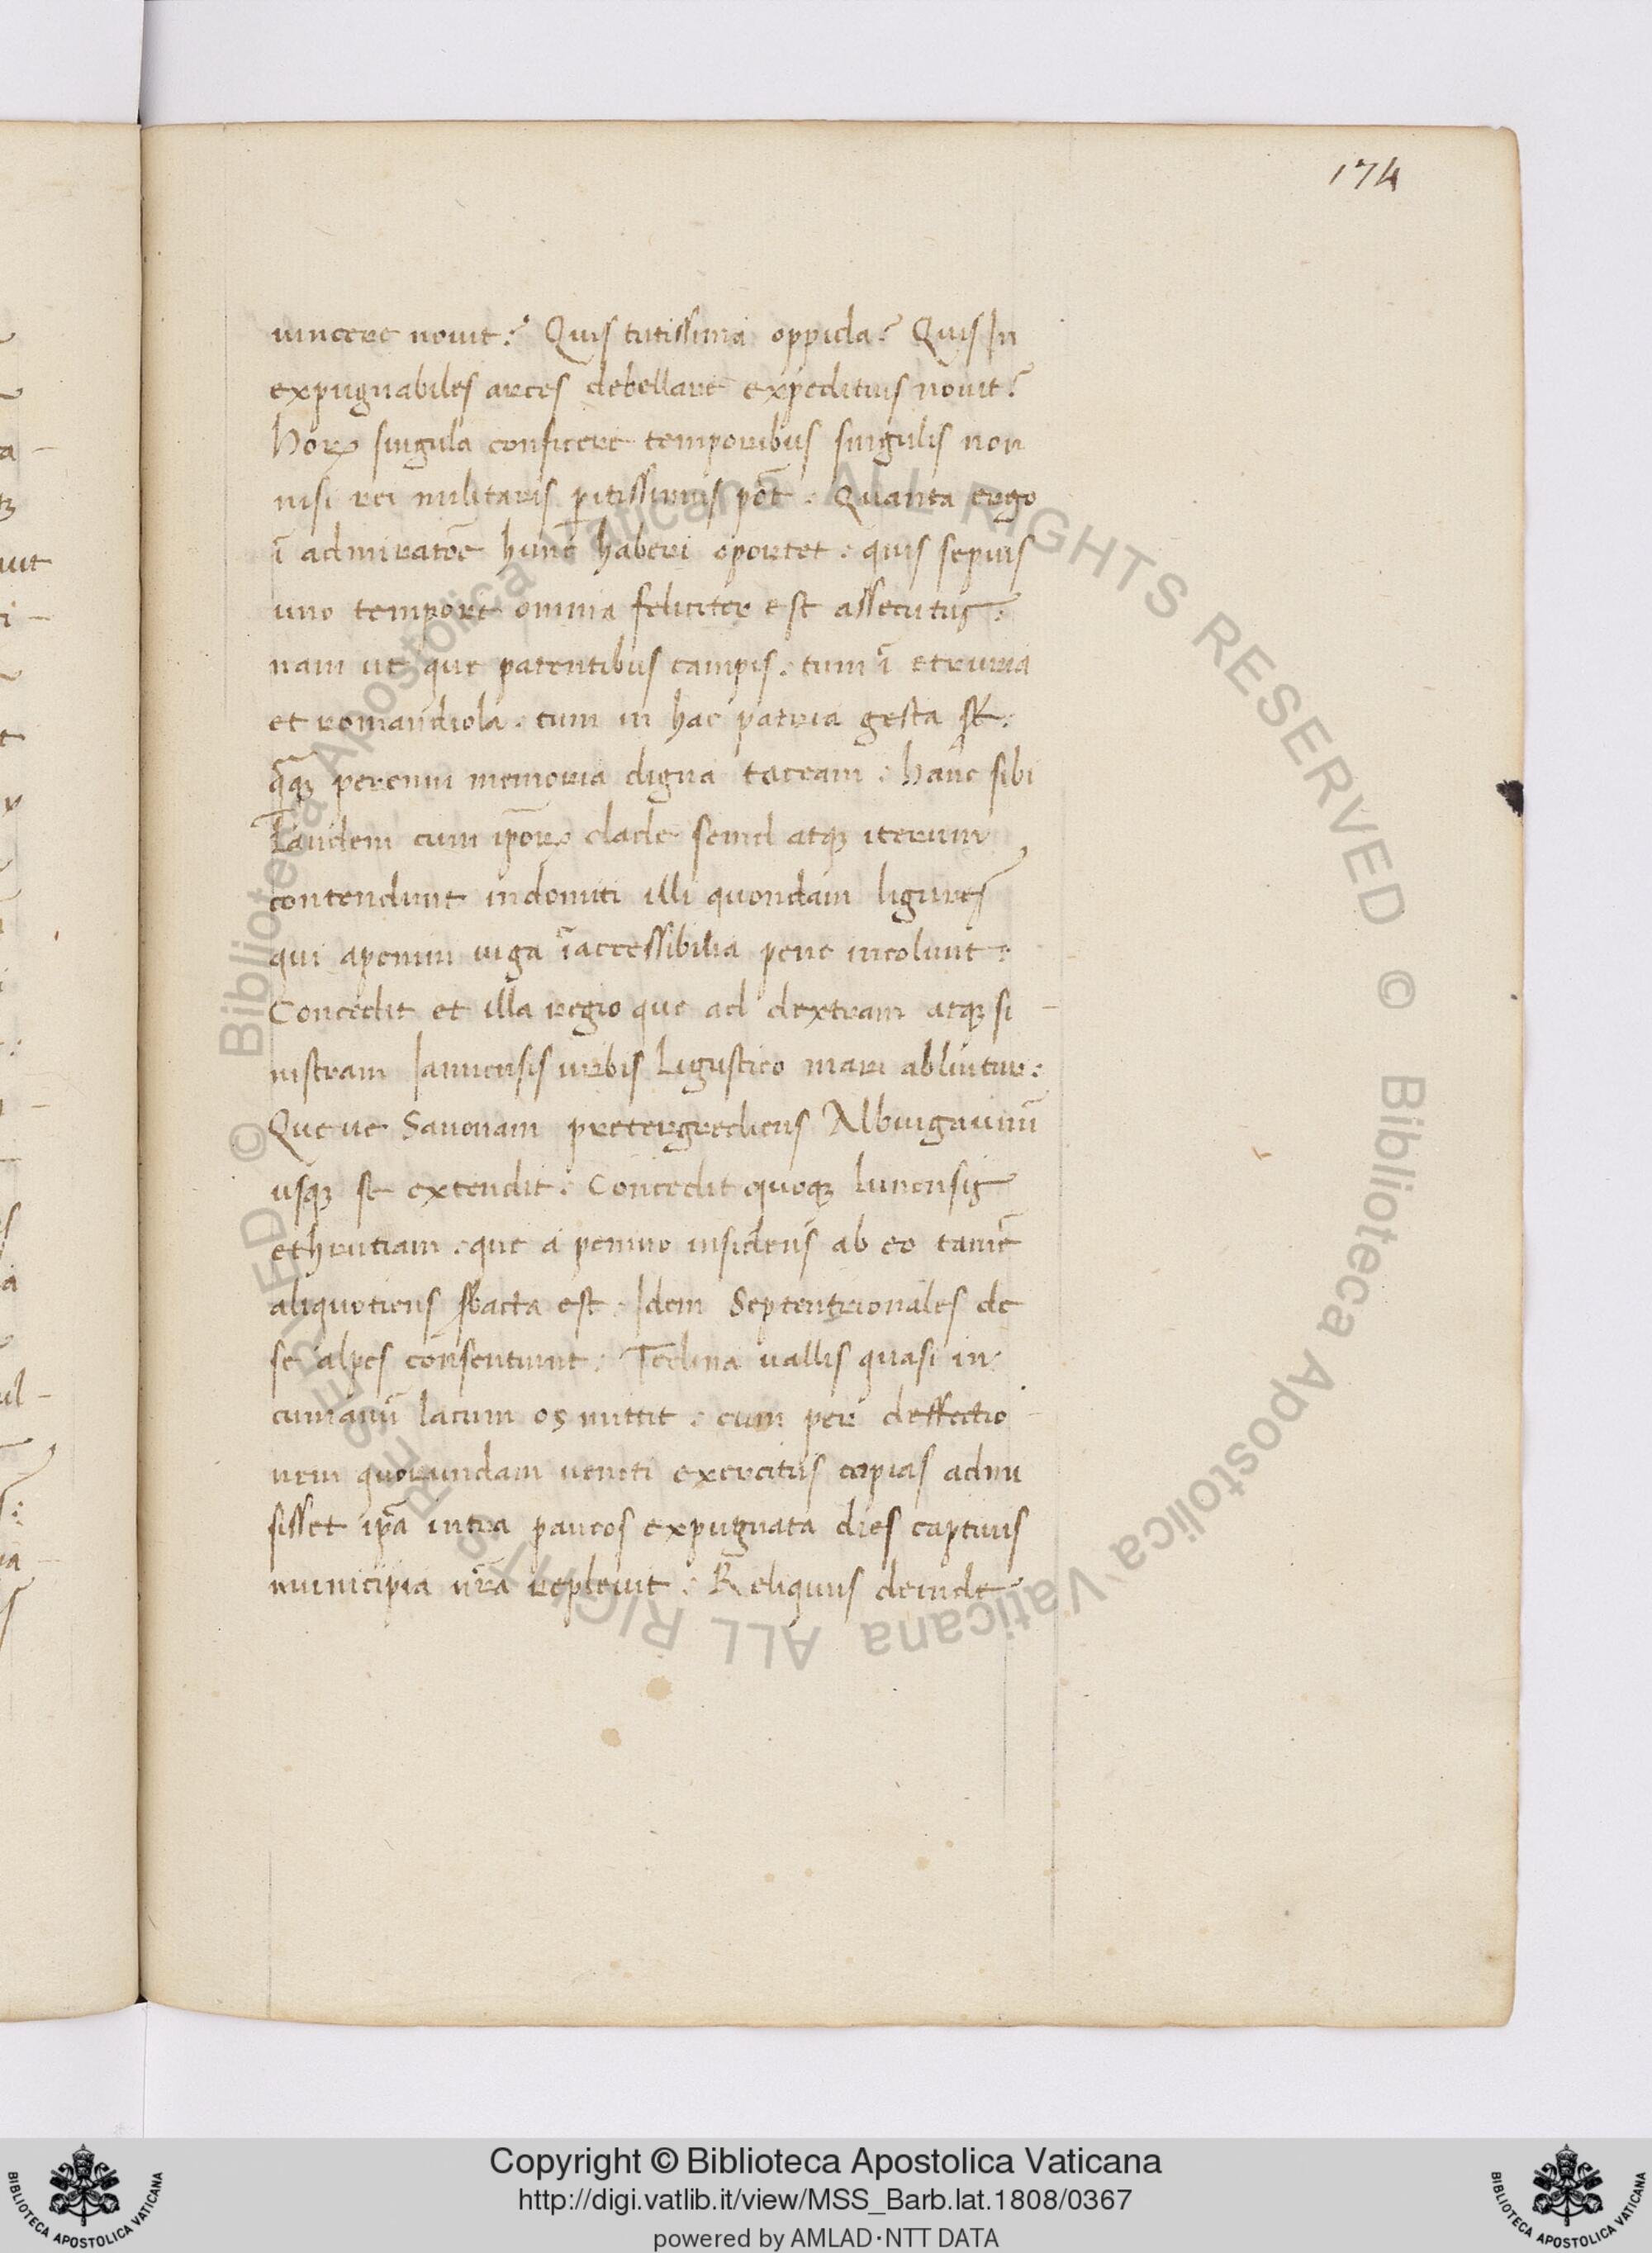 174
uincere nouit? Quis tutissima oppida? Quis In
expugnabiles arces debellare expeditius nouit?
horꝝ singula conficere temporibus singulis non
nisi rei militaris ꝑitissimus pōt. Quanta ergo
ī admiratōe hunc haberi oportet. quis sepius
uno tempore omnia feliciter est assecutus.
nam ut que patentibus campis. tum ī etruria
et romandiola. tum in hac patria gesta st̄.
q̄ꝗ perenni memoria digna taceam. hanc sibi
Tandem cum ip̄orꝝ clade semel atqꝫ iterum
contendunt indomiti illi quondam ligures
qui apenini iuga īaccessibilia pene incolunt.
Concedit et illa regio que ad dextram atqꝫ si
nistram Ianuensis urbis Ligustico mari abluitur.
Que ut Sauonam pretergrediens Albingaunū
usqꝫ se extendit. Concedit quoqꝫ lunensis
ethrutiam. que apenino insidens ab eo tamē
aliquotiens sbacta est. Idem Septentrionales de
se alpes consentiunt. Telina uallis quasi in
cumanū lacum os mittit. cum per deffectio
nem quorundam ueneti exercitus copias admi
sisset ip̄a intra paucos expugnata dies captiuis
municipia nr̄a repleuit. Reliquiis deinde
Copyright © Biblioteca Apostolica Vaticana
http://digi.vatlib.it/view/MSS_Barb.lat.1808/0367
powered by AMLAD·NTT DATA
© Biblioteca Apostolica Vaticana ALL RIGHTS RESERVED © Biblioteca Apostolica Vaticana ALL RIGHTS RESERVED
BIBLIOTECA APOSTOLICA VATICANA
BIBLIOTECA APOSTOLICA VATICANA